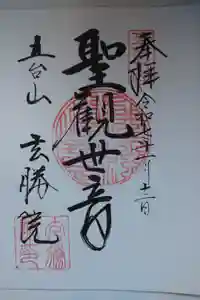 奉拝
令和七年十一月十二日
聖觀世音
五台山
玄勝院